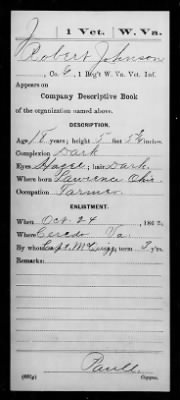 J | 1 Vet. | W. Va.
Robert Johnson
, Co. E, 1 Reg't W. Va. Vet. Inf.
Appears on
Company Descriptive Book
of the organization named above.
DESCRIPTION.
Age 18 years; height 5 feet 5½ inches.
Complexion Dark
Eyes Hazel; hair Dark
Where born Lawrence Ohio
Occupation Farmer
ENLISTMENT.
When Oct. 24, 1862.
Where Ceredo Va.
By whom Capt. ; term 3 y'rs.
Remarks:
Copyist.